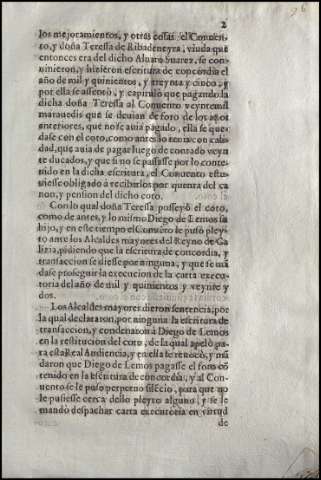 2
los mejoramientos, y otras cosas: el Conuen-
to, y doña Teressa de Ribadeneyra, viuda que
entonces era del dicho Aluaro Suarez, se con-
uinieron, y hizieron escritura de concordia el
año de mil y quinientos, y treynta y cinco, y
por ella se assentò, y capitulò que pagando la
dicha doña Teressa al Conuento veynte mil
marauedis que se deuian de foro de los años
anteriores, que no se auia pagado, ella se que-
dasse con el coto, como antes lo tenia con cali-
dad, que auia de pagar luego de contado veyn
te ducados, y que si no se passasse por lo conte-
nido en la dicha escritura, el Conuento estu-
uiesse obligado à recibirlos por quenta del ca-
non, y pension del dicho coto.
Con lo qual doña Teressa posseyò el coto,
como de antes, y lo mismo Diego de Lemos su
hijo, y en este tiempo el Conuẽto le puso pleyto
ante los Alcaldes mayores del Reyno de Ga
lizia, pidiendo que la escritura de concordia, y
transaccion se diesse por ninguna, y que se mã
dasse proseguir la execucion de la carta execu-
toria del año de mil y quinientos y veynte y
dos.
Los Alcaldes mayores dieron sentencia, por
la qual declararon, por ninguna la escritura de
transaccion, y condenaron à Diego de Lemos
en la restitucion del coto, de la qual apelò pa-
ra esta Real Audiencia, y en ella se reuocò, y mã
daron que Diego de Lemos pagasse el foro cõ
tenido en la escritura de concordia, y al Con-
uento se le puso perpetuo silẽcio, para que no
le pusiesse cerca dello pleyto alguno, y se le
mandò despachar carta executoria en virtud
de